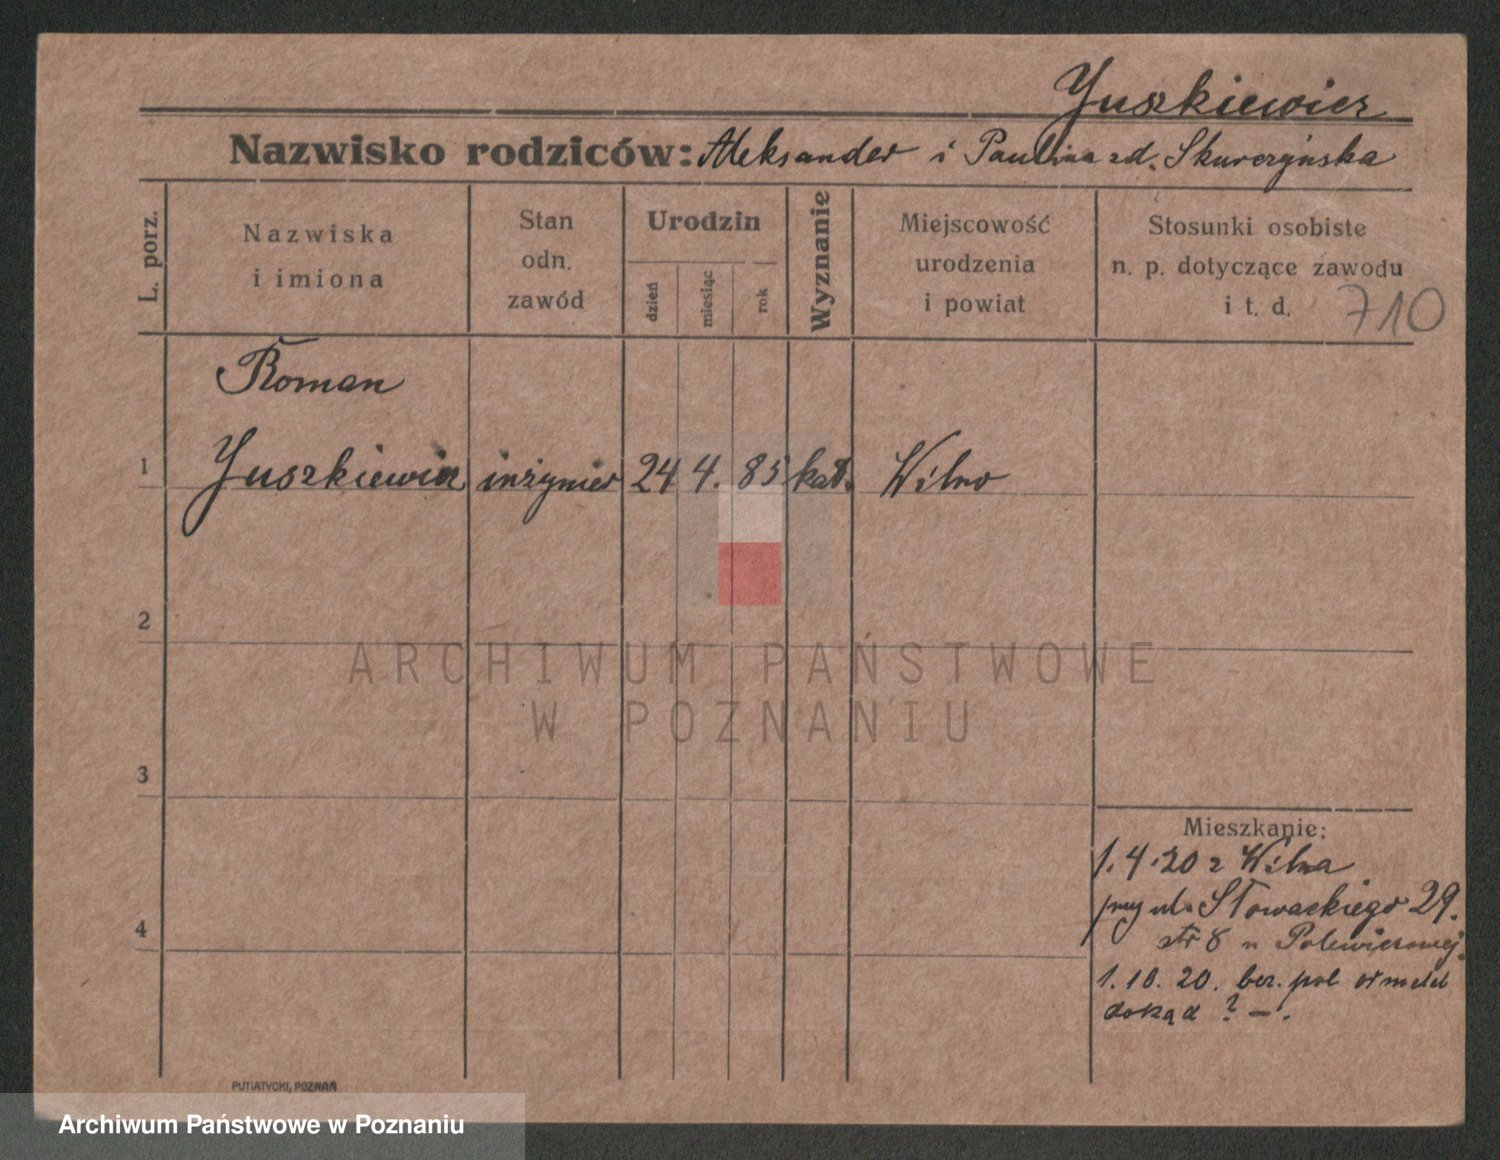 Juszkiewicz
Nazwisko rodziców: Aleksander i Paulina zd. Skurczyńska
L. porz.
Nazwiska
i imiona
Stan
odn.
zawód
Urodzin
dzień
miesiąc
rok
Wyznanie
Miejscowość
urodzenia
i powiat
Stosunki osobiste
n. p. dotyczące zawodu
i t. d.
710
Roman
1 Juszkiewicz inżynier 24 4. 85 kat. Wilno
2
ARCHIWUM PAŃSTWOWE
W POZNANIU
3
Mieszkanie:
1.4.20 z Wilna
przy ul. Słowackiego 29.
8 u
4
1.10.20. bez. pol
dokąd ? —.
PUTIATYCKI, POZNAŃ
Archiwum Państwowe w Poznaniu